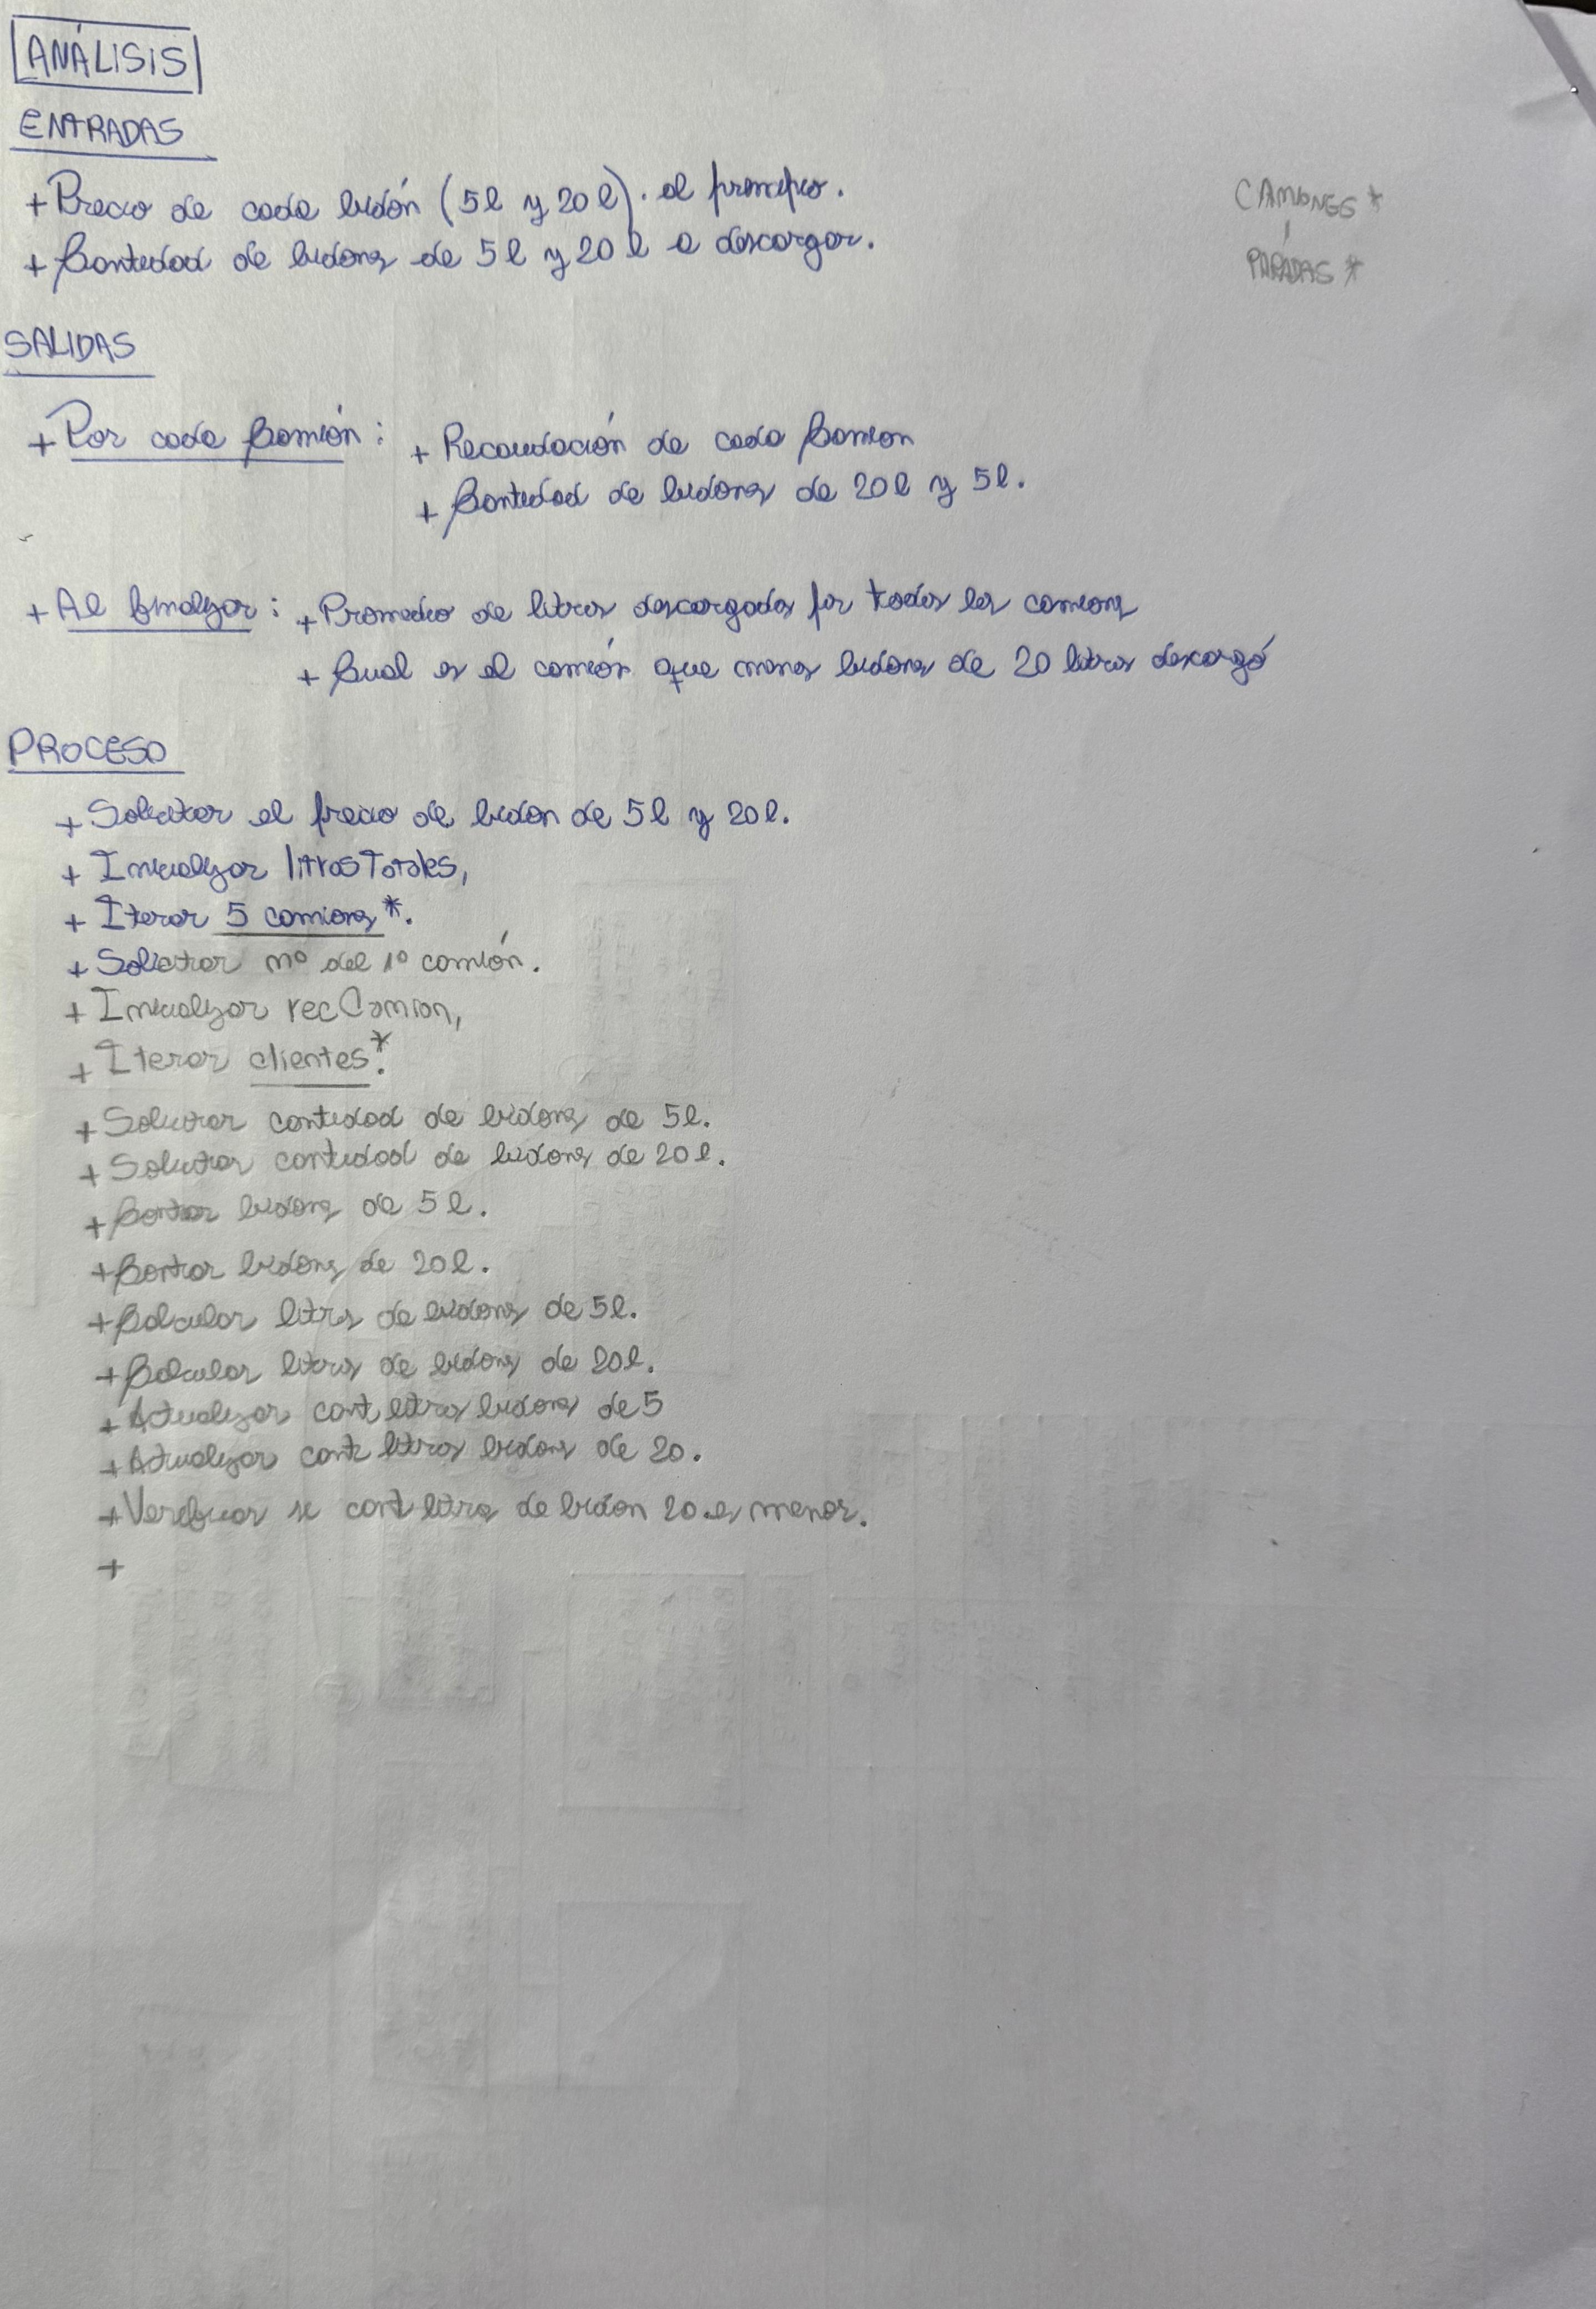 ANÁLISIS
ENTRADAS
+ Precio de cada bidón (5l y 20l). al principio.
+ Cantidad de bidones de 5l y 20l a descargar.
CAMIONES *
PARADAS *
SALIDAS
+ Por cada Camión: + Recaudación de cada Camion
+ Cantidad de bidones de 20l y 5l.
+ Al finalizar: + Promedio de litros descargados por todos los camiones
+ Cual es el camión que menos bidones de 20 litros descargó
PROCESO
+ Solicitar el precio de bidon de 5l y 20l.
+ Inicializar litrosTotales,
+ Iterar 5 camiones *.
+ Solicitar nº del 1º camión.
+ Inicializar recCamion,
+ Iterar clientes*.
+ Solicitar cantidad de bidones de 5l.
+ Solicitar cantidad de bidones de 20l.
+ Contar bidones de 5l.
+ Contar bidones de 20l.
+ Calcular litros de bidones de 5l.
+ Calcular litros de bidones de 20l.
+ Actualizar cant litros bidones de 5
+ Actualizar cant litros bidones de 20.
+ Verificar si cant litros de bidon 20 es menor.
+